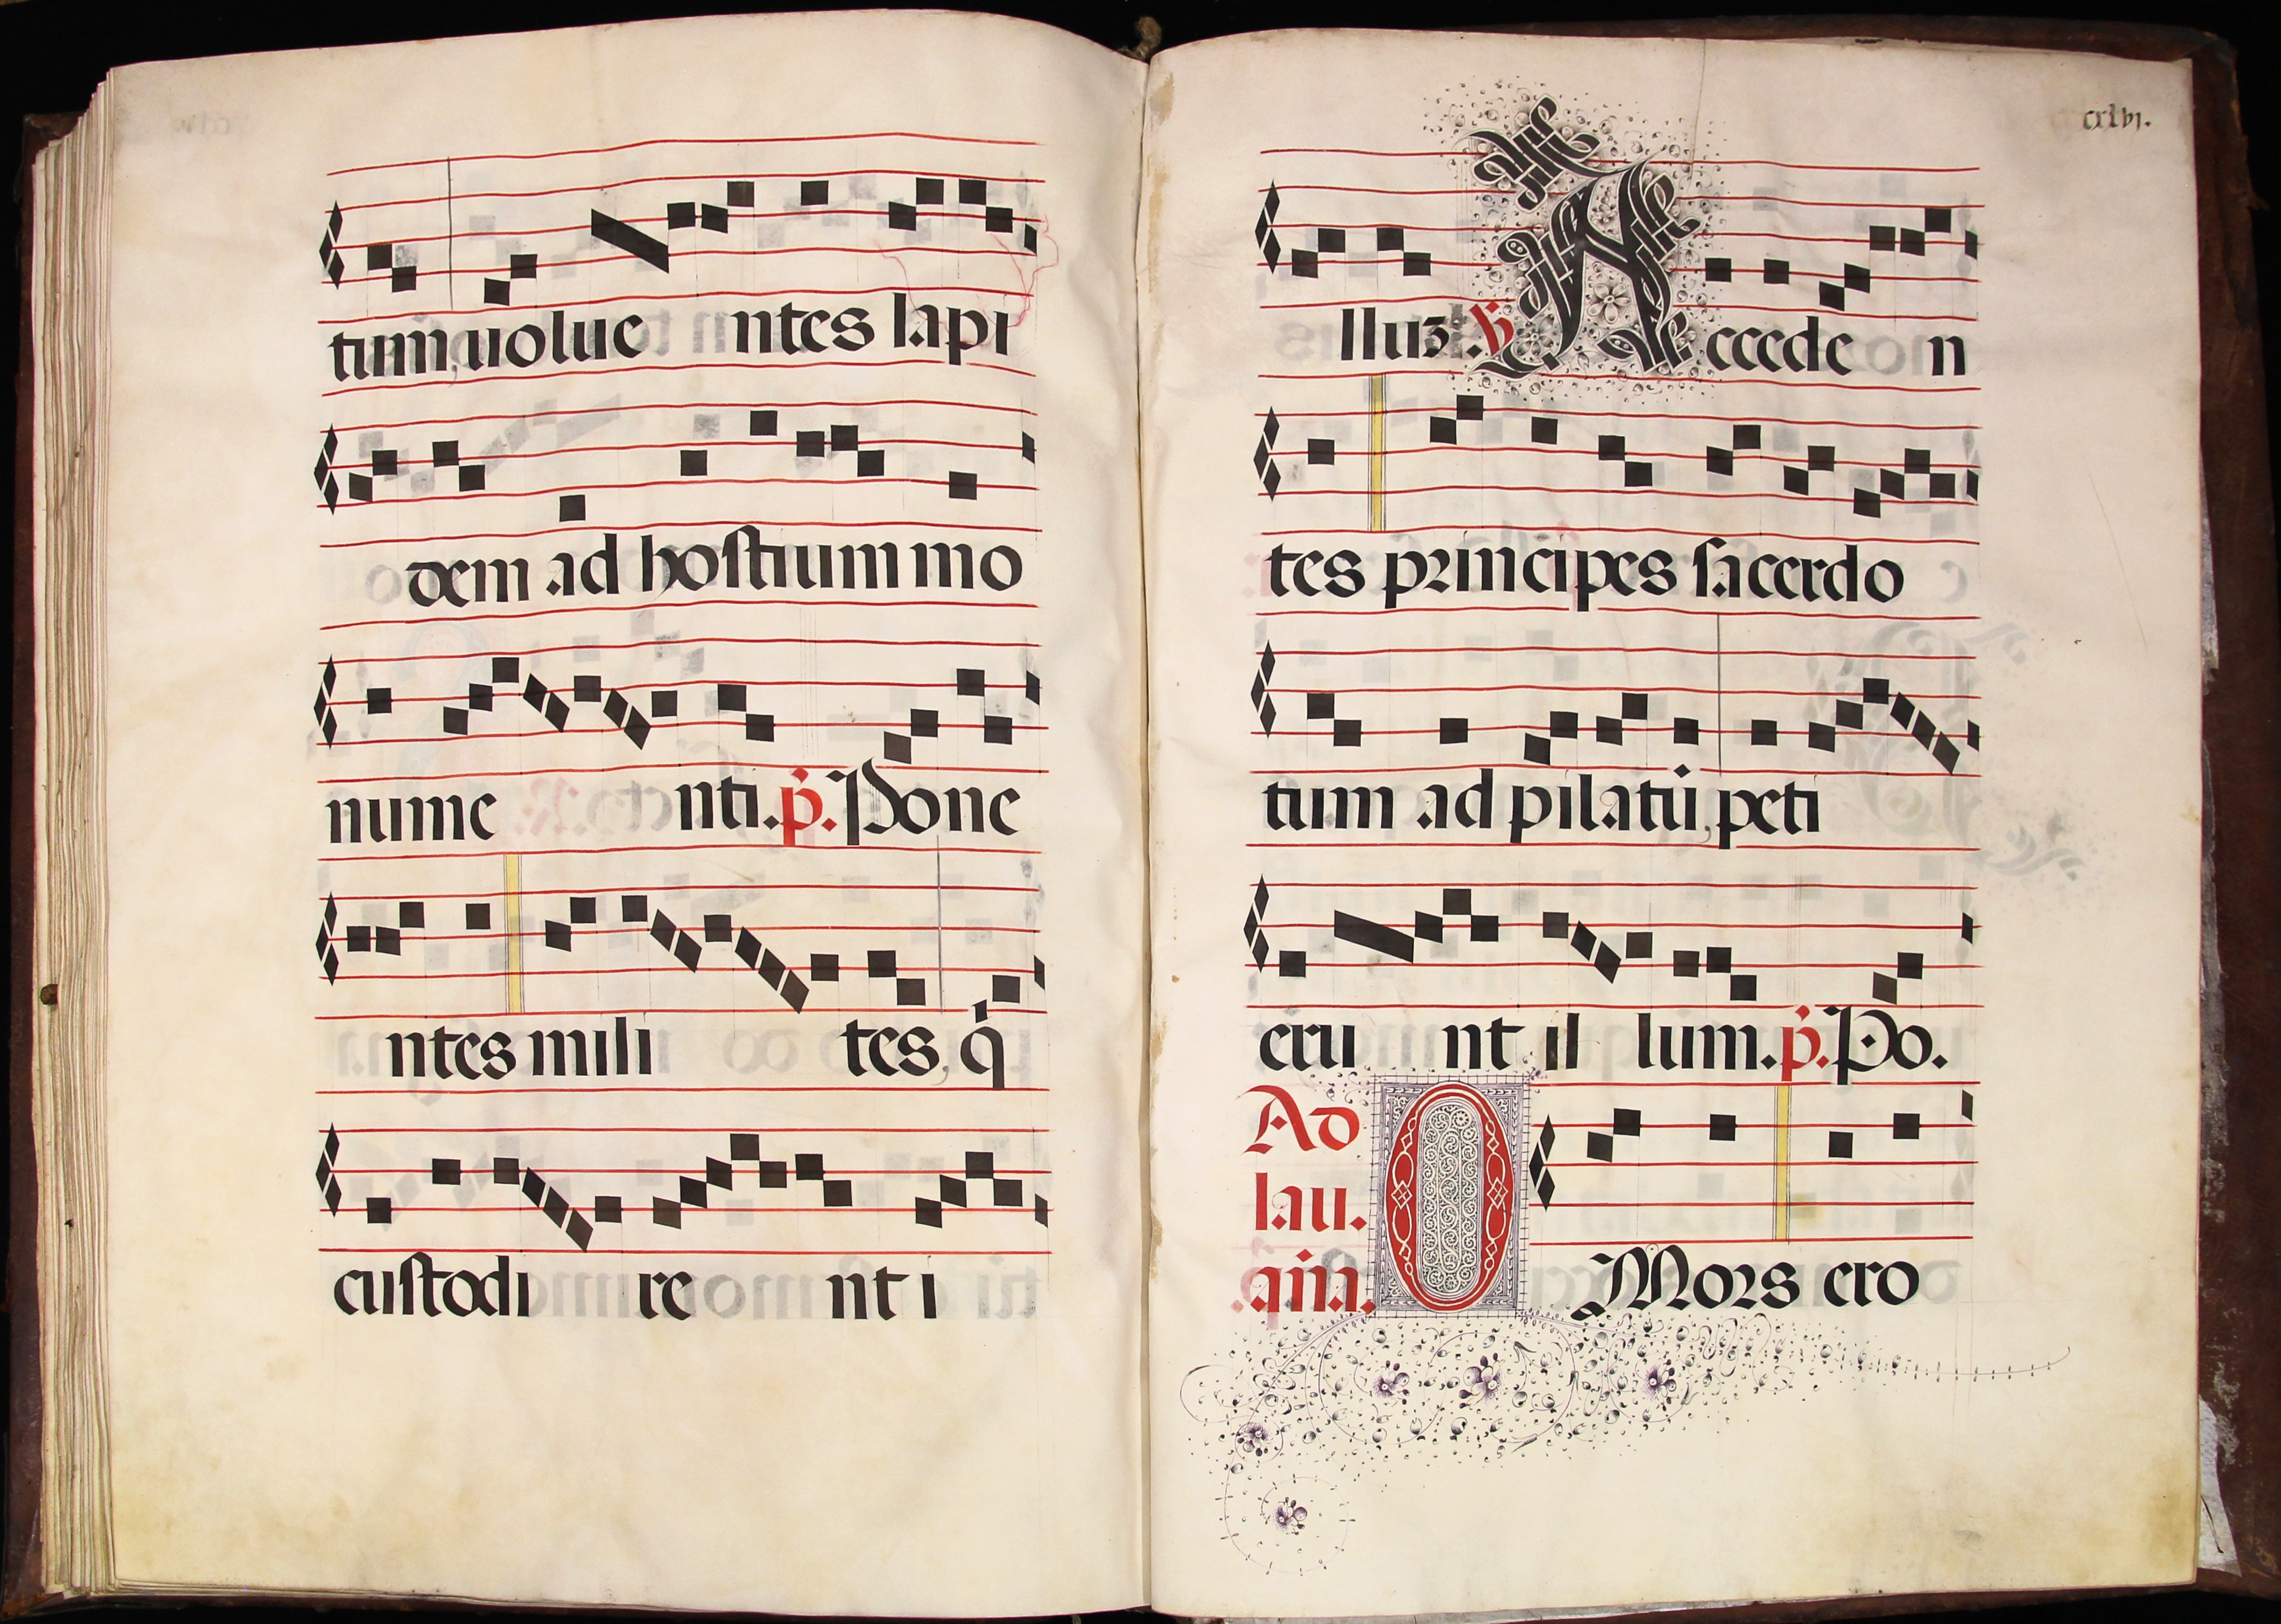 tum, uolue ntes lapi
dem ad hostium mo
nume nti. p̃. Pone
ntes mili tes, q̇
custodi re nt i
cxlvj.
lluʒ. ℣ Accede n
tes principes sacerdo
tum ad pilatũ, peti
eru nt il lum. p̃. Po.
Ad
lau.
añ. O Mors ero